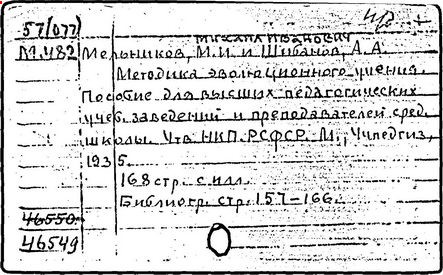 57(077)
МИХАИЛ ИВАНОВИЧ
М.482 Мельников, М.И. и Шибанов, А.А.
Методика эволюционного учения.
Пособие для высших педагогических
учеб. заведений и преподавателей сред.
школы. Утв. НКП РСФСР. М., Учпедгиз,
1935.
168 стр. с илл.
Библиогр. стр. 157-166.
46550
46549